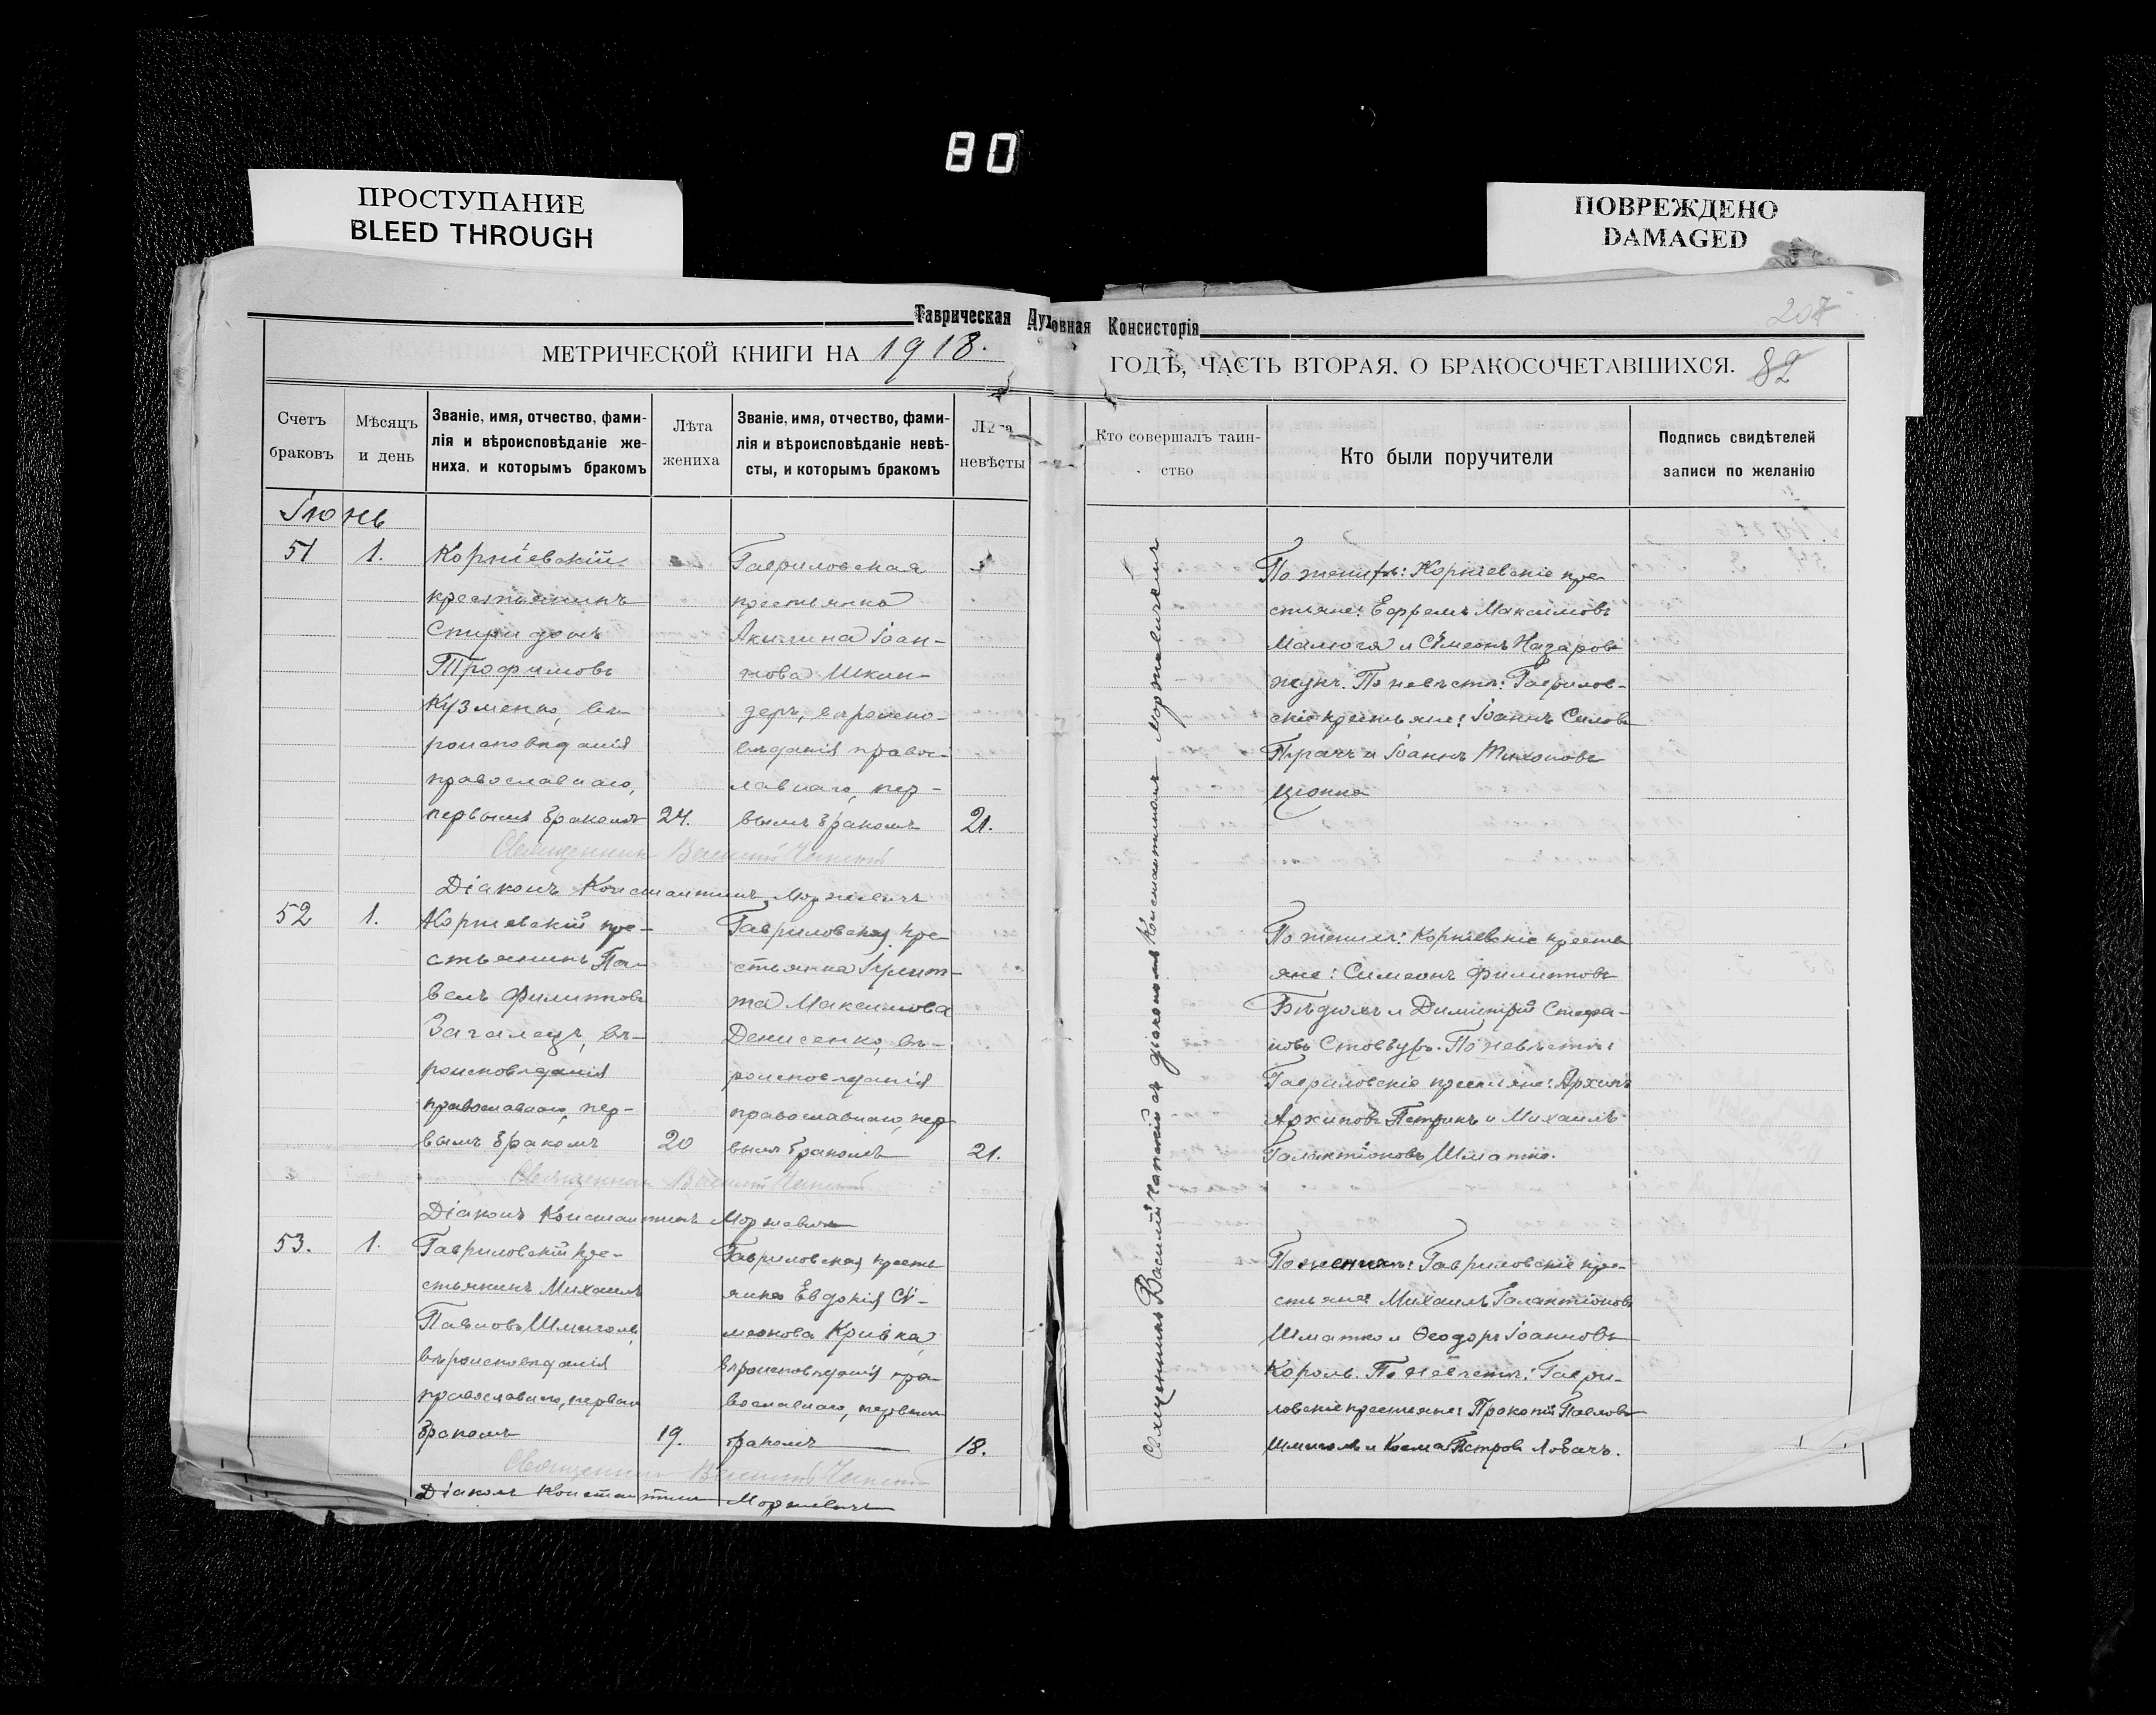 80
ПРОСТУПАНИЕ
BLEED THROUGH
ПОВРЕЖДЕНО
DAMAGED
Таврическая Духовная Консисторія
207
МЕТРИЧЕСКОЙ КНИГИ НА 1918.
ГОДѢ, ЧАСТЬ ВТОРАЯ, О БРАКОСОЧЕТАВШИХСЯ.
82
Счетъ
браковъ
Мѣсяцъ
и день
Званіе, имя, отчество, фами-
лія и вѣроисповѣданіе же-
ниха, и которымъ бракомъ
Лѣта
жениха
Званіе, имя, отчество, фами-
лія и вѣроисповѣданіе невѣ-
сты, и которымъ бракомъ
Лѣта
невѣсты
Кто совершалъ таин-
ство
Кто были поручители
Подпись свидѣтелей
записи по желанію
Іюнь
51
1.
Корніевскій
крестьянинъ
Спиридонъ
Трофимовъ
Кузменко, вѣ-
роисповѣданія
православнаго,
первымъ бракомъ
24.
Гавриловская
крестьянка
Акилина Іоан-
нова Шкин-
деръ, вѣроиспо-
вѣданія правос-
лавнаго, пер-
вымъ бракомъ
21.
По женихѣ: Корніевскіе кре-
стьяне: Ефремъ Максимовъ
Малюга и Сѵмеонъ Назаровъ
жукъ. По невѣстѣ: Гаврилов-
скіе крестьяне: Іоаннъ Силовъ
Іоаннъ Тихоновъ
Священникъ Василій
Діаконъ Константинъ Моржевичъ
52
1.
Корніевскій кре-
стьянинъ Па-
велъ Филипповъ
Загалецъ, вѣ-
роисповѣданія
православнаго, пер-
вымъ бракомъ
20
Гавриловская кре-
стьянка Іулит-
та Максимова
Денисенко, вѣ-
роисповѣданія
православнаго, пер-
вымъ бракомъ
21.
По женихѣ: Корніевскіе кресть-
яне: Симеонъ Филипповъ
и Димитрій Стефа-
новъ Стовбуръ. По невѣстѣ:
Гавриловскіе крестьяне: Архипъ
Архиповъ Петрикъ и Михаилъ
Галактіоновъ Шматко.
Священникъ Василій
Діаконъ Константинъ Моржевичъ
53.
1.
Гавриловскій кре-
стьянинъ Михаилъ
Павловъ Шмиголь,
вѣроисповѣданія
православнаго, первымъ
бракомъ
19.
Гавриловская кресть-
янка Евдокія Сѵ-
меонова Кривка,
вѣроисповѣданія пра-
вославнаго, первымъ
бракомъ
18.
По женихѣ: Гавриловскіе кре-
стьяне Михаилъ Галактіоновъ
Шматко и Ѳеодоръ Іоанновъ
Король. По невѣстѣ: Гаври-
ловскіе крестьяне: Прокопій Павловъ
Шмиголь и Косма Петровъ Ловачъ.
Священникъ Василій
Діаконъ Константинъ Моржевичъ
Священникъ Василій съ діакономъ Константиномъ Моржевичемъ